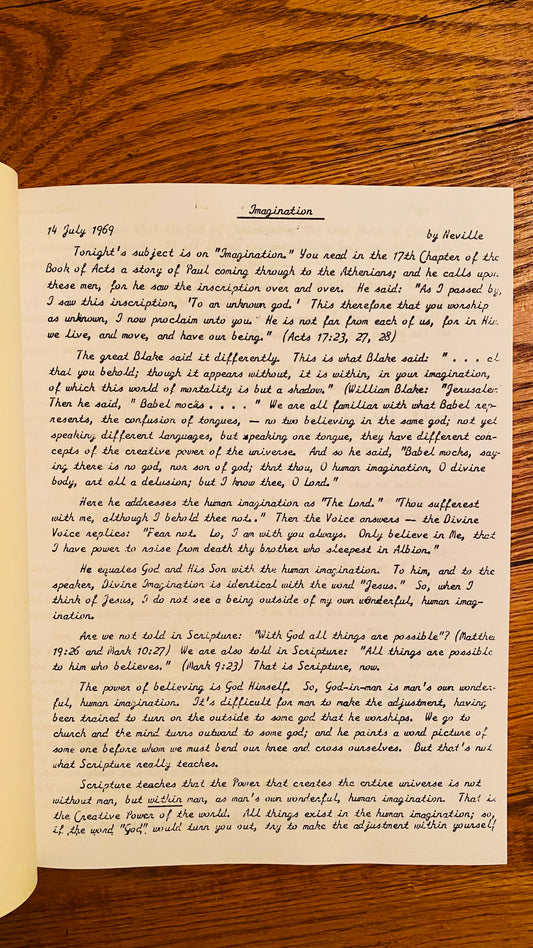 Imagination
14 July 1969
by Neville
Tonight's subject is on "Imagination." You read in the 17th Chapter of the
Book of Acts a story of Paul coming through to the Athenians; and he calls upon
these men, for he saw the inscription over and over. He said: "As I passed by,
I saw this inscription, 'To an unknown god.' This therefore that you worship
as unknown, I now proclaim unto you. He is not far from each of us, for in Him
we live, and move, and have our being." (Acts 17:23, 27, 28)
The great Blake said it differently. This is what Blake said: ". . . al
that you behold; though it appears without, it is within, in your imagination,
of which this world of mortality is but a shadow." (William Blake: "Jerusalem
Then he said, " Babel mocks . . . . " We are all familiar with what Babel rep-
resents, the confusion of tongues, — no two believing in the same god; not yet
speaking different languages, but speaking one tongue, they have different con-
cepts of the creative power of the universe. And so he said, "Babel mocks, say-
ing there is no god, nor son of god; that thou, O human imagination, O divine
body, art all a delusion; but I know thee, O Lord."
Here he addresses the human imagination as "The Lord." "Thou sufferest
with me, although I behold thee not.." Then the Voice answers — the Divine
Voice replies: "Fear not. Lo, I am with you always. Only believe in Me, that
I have power to raise from death thy brother who sleepest in Albion."
He equates God and His Son with the human imagination. To him, and to the
speaker, Divine Imagination is identical with the word "Jesus." So, when I
think of Jesus, I do not see a being outside of my own wonderful, human imag-
ination.
Are we not told in Scripture: "With God all things are possible"? (Matthe
19:26 and Mark 10:27) We are also told in Scripture: "All things are possible
to him who believes." (Mark 9:23) That is Scripture, now.
The power of believing is God Himself. So, God-in-man is man's own wonder-
ful, human imagination. It's difficult for man to make the adjustment, having
been trained to turn on the outside to some god that he worships. We go to
church and the mind turns outward to some god; and he paints a word picture of
some one before whom we must bend our knee and cross ourselves. But that's not
what Scripture really teaches.
Scripture teaches that the Power that creates the entire universe is not
without man, but within man, as man's own wonderful, human imagination. That is
the Creative Power of the world. All things exist in the human imagination; so,
if the word "God" would turn you out, try to make the adjustment within yourself